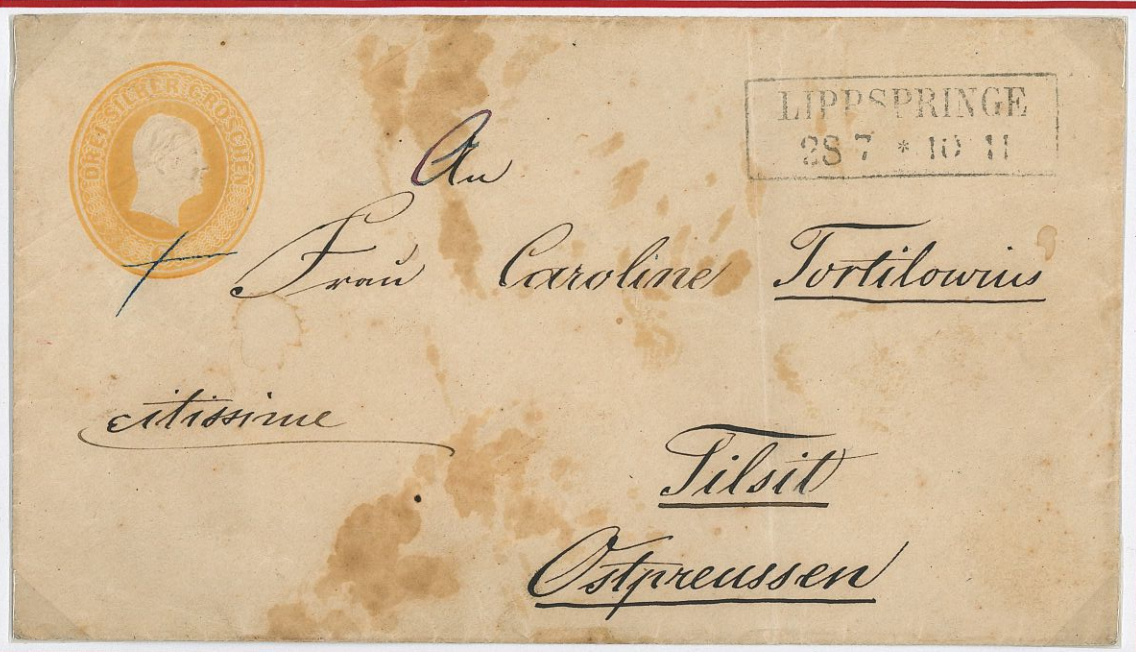 DREI SILBERGROSCHEN
LIPPSPRINGE
28 7 * 10 11
An
Frau Caroline Tortilowius
citissime
Tilsit
Ostpreussen